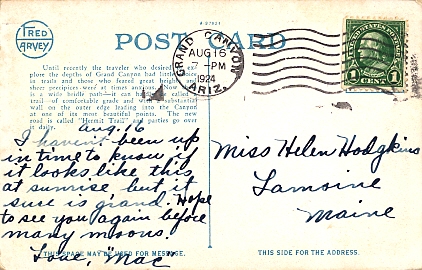 FRED
HARVEY
A 87921
POST CARD
GRAND CANYON
AUG 16
7 - PM
1924
ARIZ.
UNITED STATES POSTAGE
1 CENT 1
Until recently the traveler who desired to ex-
plore the depths of Grand Canyon had little choice
in trails and those who feared great heights and
sheer precipices were at times anxious. Now there
is a wide bridle path—it can hardly be called
trail—of comfortable grade and with substantial
wall on the outer edge leading into the Canyon
at one of its most beautiful points. The new
road is called "Hermit Trail" and parties go over
it daily.
Aug. 16
I haven't been up
in time to know if
it looks like this
at sunrise, but it
sure is grand. Hope
to see you again before
many moons.
Love, "Mac"
Miss Helen Hodgkins
Lamoine
Maine
THIS SPACE MAY BE USED FOR MESSAGE.
THIS SIDE FOR THE ADDRESS.